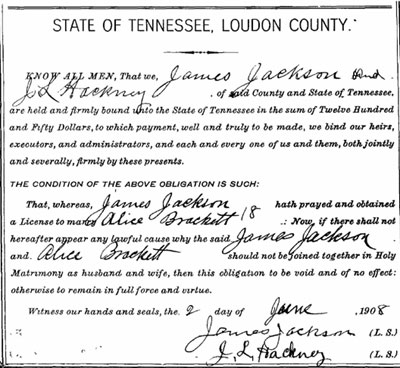 STATE OF TENNESSEE, LOUDON COUNTY.
KNOW ALL MEN, That we, James Jackson and
J. L. Hackney, of said County and State of Tennessee,
are held and firmly bound unto the State of Tennessee in the sum of Twelve Hundred
and Fifty Dollars, to which payment, well and truly to be made, we bind our heirs,
executors, and administrators, and each and every one of us and them, both jointly
and severally, firmly by these presents.
THE CONDITION OF THE ABOVE OBLIGATION IS SUCH:
That, whereas, James Jackson hath prayed and obtained
a License to marry Alice Brackett 18 .: Now, if there shall not
hereafter appear any lawful cause why the said James Jackson
and Alice Brackett should not be joined together in Holy
Matrimony as husband and wife, then this obligation to be void and of no effect:
otherwise to remain in full force and virtue.
Witness our hands and seals, the 2 day of June 1908
James Jackson (L. S.)
J. L. Hackney (L. S.)